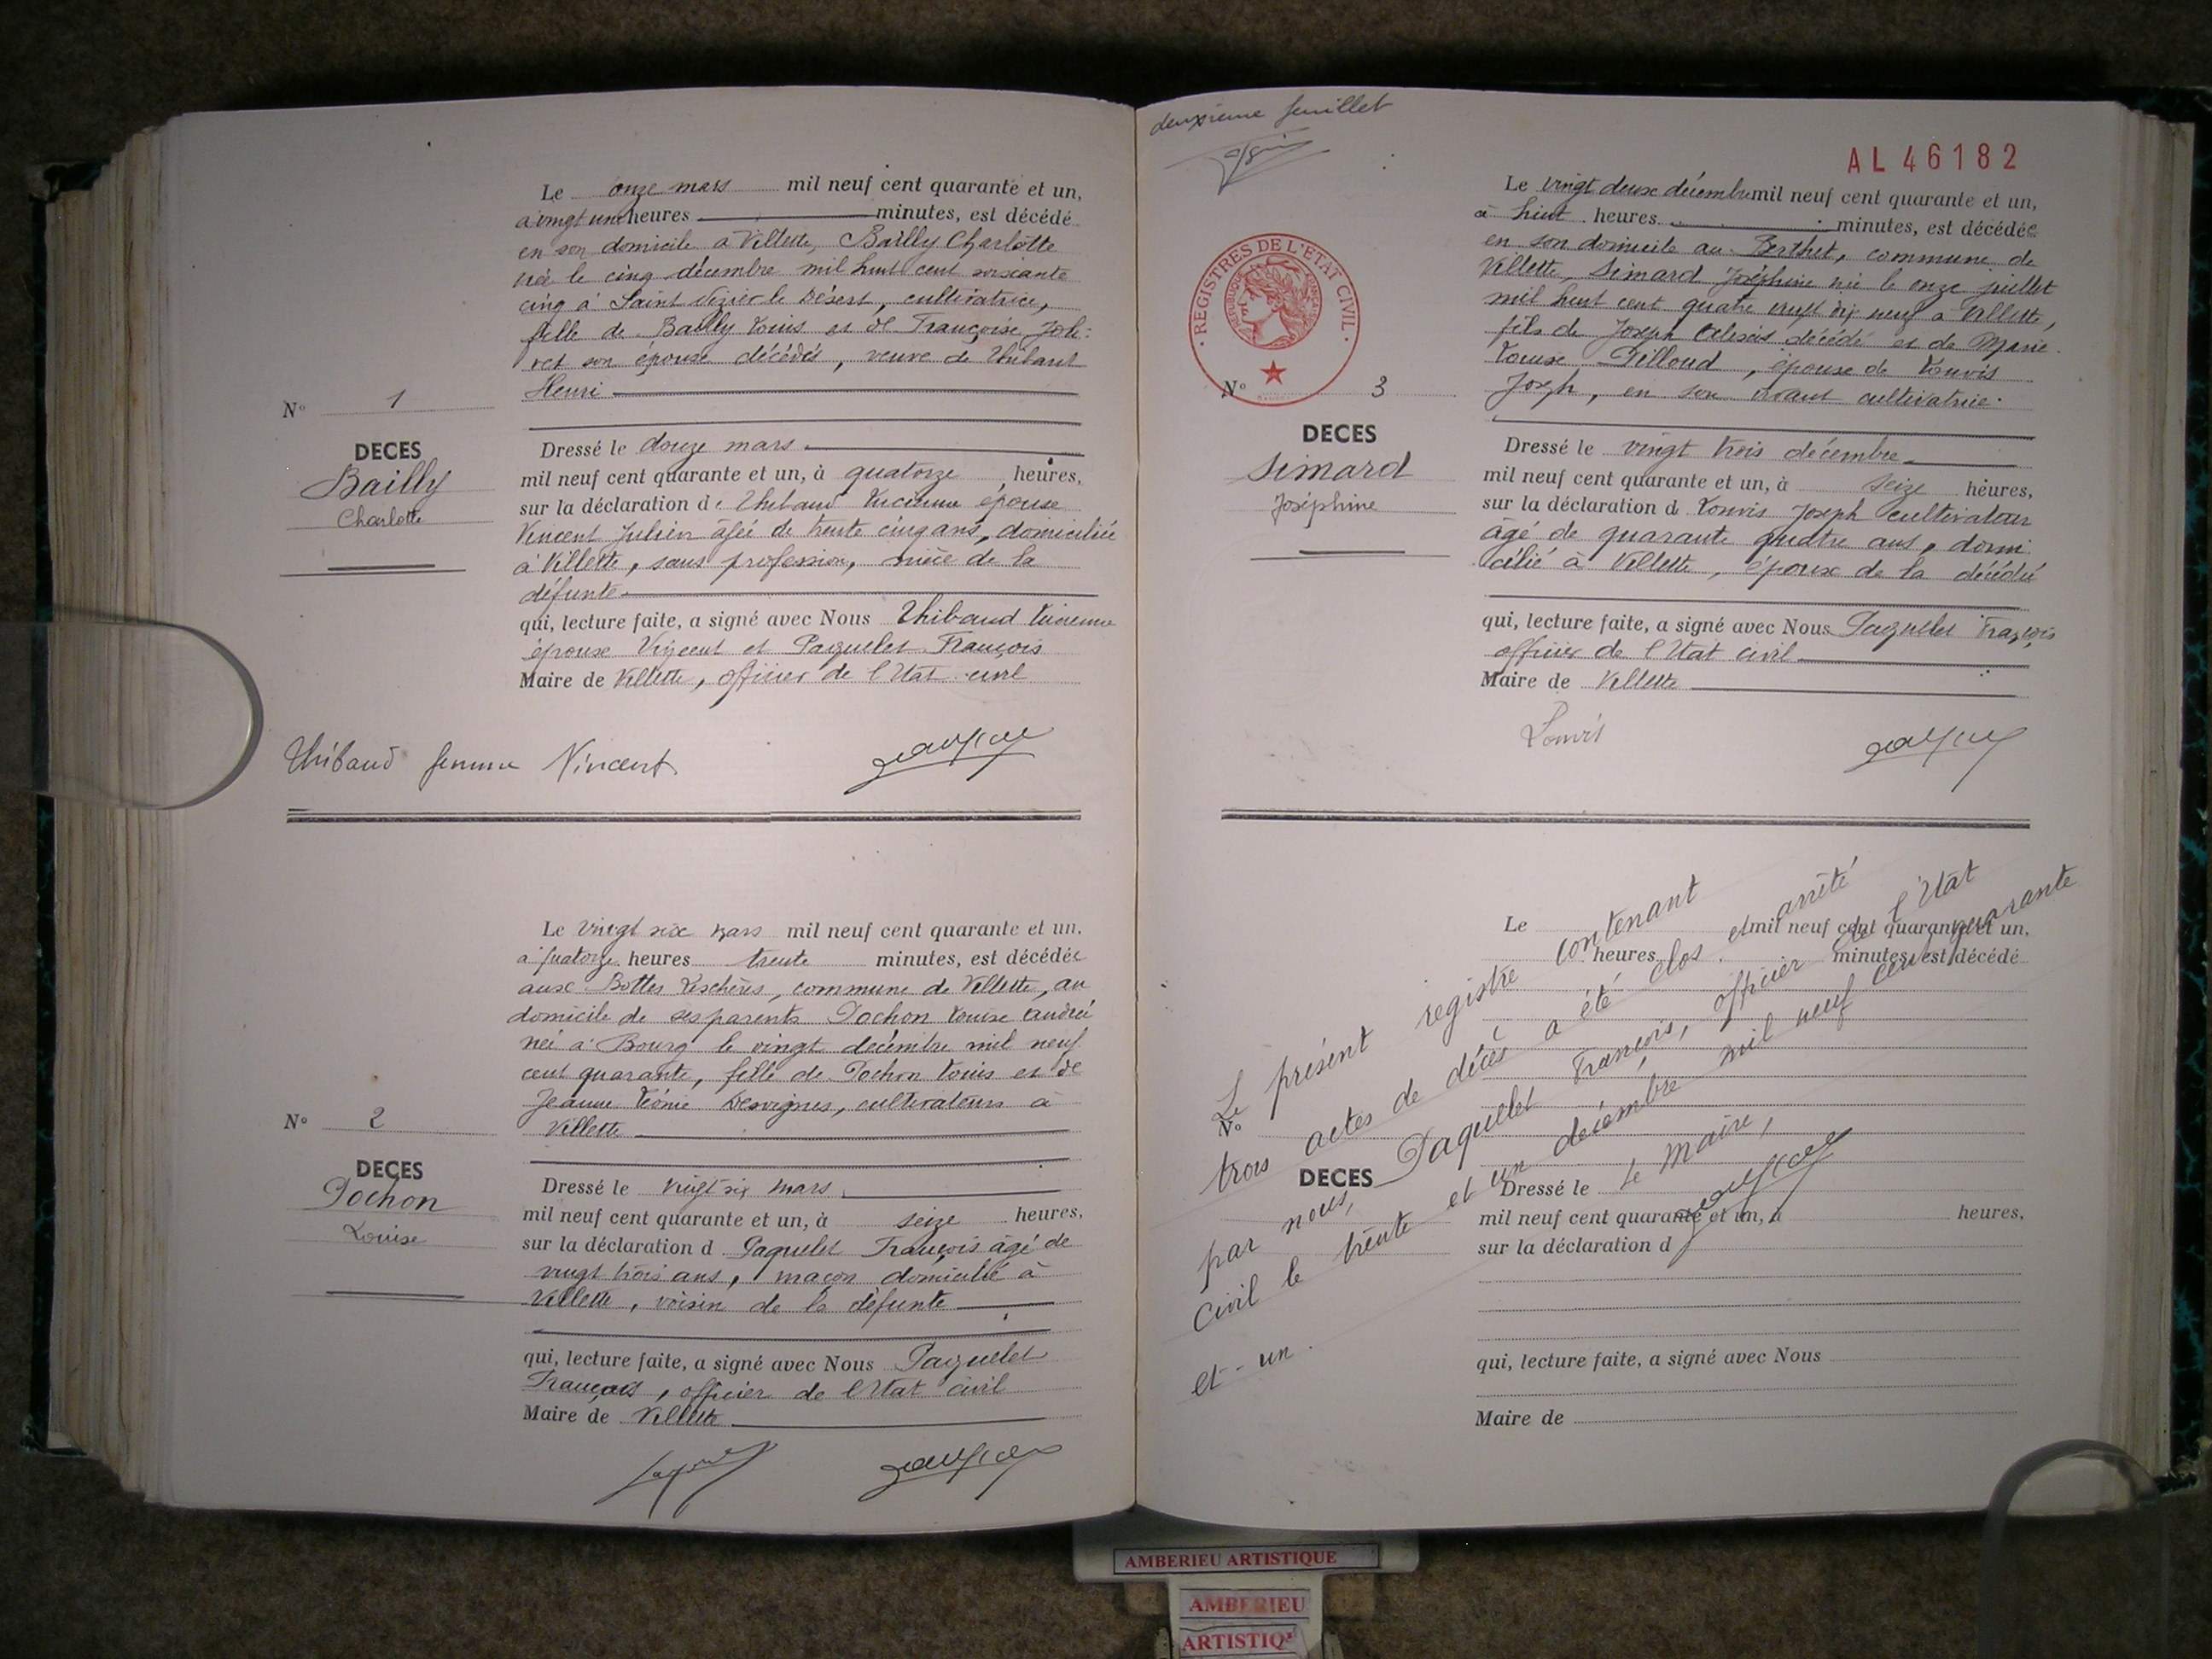 Le onze mars mil neuf cent quarante et un,
à vingt une heures minutes, est décédé
en son domicile à Villette, Bailly Charlotte
née le cinq décembre mil huit cent soixante
cinq à Saint Nizier le Désert, cultivatrice,
fille de Bailly Louis et de Françoise
son épouse décédés, veuve de Thibaud
Henri
N° 1
DECES
Bailly
Charlotte
Dressé le douze mars
mil neuf cent quarante et un, à quatorze heures,
sur la déclaration de Thibaud épouse
Vincent Julien âgée de trente cinq ans, domiciliée
à Villette, sans profession, nièce de la
défunte
qui, lecture faite, a signé avec Nous Thibaud
épouse Vincent et Paquelet François
Maire de Villette, officier de l'Etat civil
Thibaud femme Vincent
Le vingt six mars mil neuf cent quarante et un.
à quatorze heures trente minutes, est décédée
aux Bottes commune de Villette, au
domicile de ses parents Pochon Louise Andrée
née à Bourg le vingt décembre mil neuf
cent quarante, fille de Pochon Louis et de
Jeanne Léonie Desvignes, cultivateurs à
Villette
N° 2
DECES
Pochon
Louise
Dressé le vingt six mars
mil neuf cent quarante et un, à seize heures,
sur la déclaration d Paquelet François âgé de
vingt trois ans, maçon domicilié à
Villette, voisin de la défunte
qui, lecture faite, a signé avec Nous Paquelet
François, officier de l'Etat civil
Maire de Villette
deuxième feuillet
AL 46182
REGISTRES DE L'ETAT CIVIL
Le vingt deux décembre mil neuf cent quarante et un,
à huit heures minutes, est décédée
en son domicile au Berthet, commune de
Villette, Simard Joséphine née le onze juillet
mil huit cent quatre vingt dix neuf à Villette,
fils de Joseph Alexis décédé et de Marie
Louise Pilloud, épouse de Louvis
Joseph, en son vivant cultivatrice.
N° 3
DECES
Simard
Joséphine
Dressé le vingt trois décembre
mil neuf cent quarante et un, à seize heures,
sur la déclaration d Louvis Joseph cultivateur
âgé de quarante quatre ans, domi
cilié à Villette, époux de la décédée
qui, lecture faite, a signé avec Nous Paquelet François
officier de l'Etat civil
Maire de Villette
Louvis
Le mil neuf cent quarante et un,
heures minutes, est décédé
N°
DECES
Dressé le
mil neuf cent quarante et un, à heures,
sur la déclaration d
qui, lecture faite, a signé avec Nous
Maire de
Le présent registre contenant
trois actes de décès a été clos et arrêté
par nous, Paquelet François, officier de l'Etat
Civil le trente et un décembre mil neuf cent quarante
et-un.
Le Maire,
AMBERIEU ARTISTIQUE
AMBERIEU
ARTISTIQ